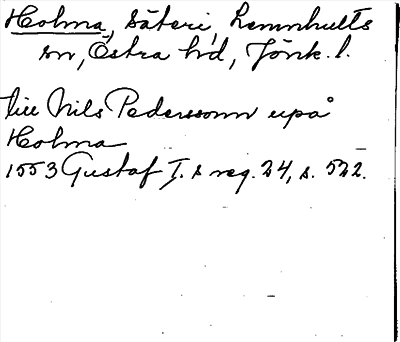 Holma, säteri, Lemnhults
sn, Östra hd, Jönk. l.
till Nils Pedersson upå
Holma
1553 Gustaf I.s reg. 24, s. 522.